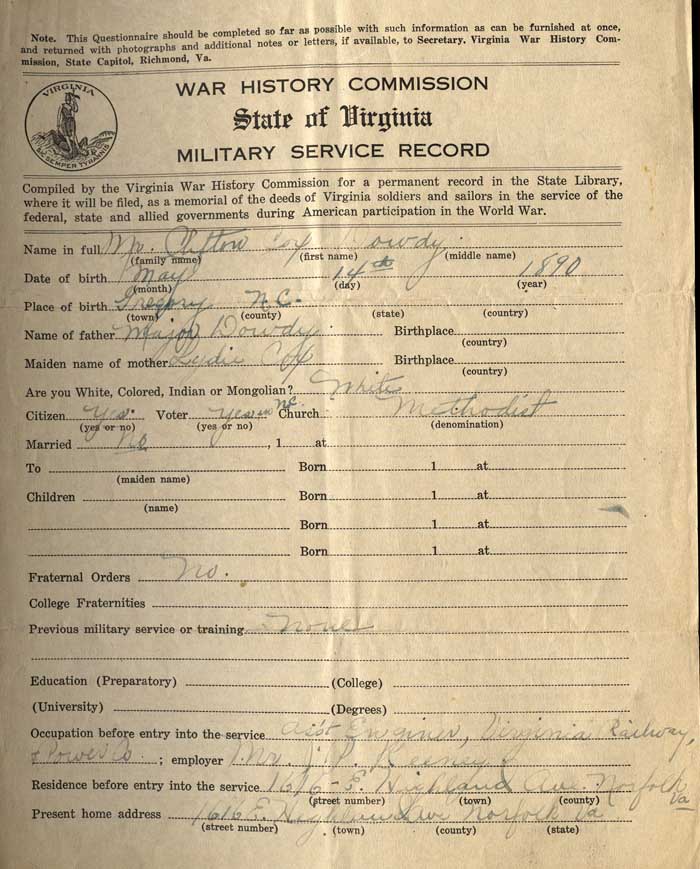 Note. This Questionnaire should be completed so far as possible with such information as can be furnished at once,
and returned with photographs and additional notes or letters, if available, to Secretary, Virginia War History Com-
mission, State Capitol, Richmond, Va.
VIRGINIA
SIC SEMPER TYRANNIS
WAR HISTORY COMMISSION
State of Virginia
MILITARY SERVICE RECORD
Compiled by the Virginia War History Commission for a permanent record in the State Library,
where it will be filed, as a memorial of the deeds of Virginia soldiers and sailors in the service of the
federal, state and allied governments during American participation in the World War.
Name in full Mr. Clifton Cox Dowdy.
(family name) (first name) (middle name)
Date of birth May 14th 1890
(month) (day) (year)
Place of birth Gregory N.C.
(town) (county) (state) (country)
Name of father Major Dowdy Birthplace
(country)
Maiden name of mother Ludie Cox Birthplace
(country)
Are you White, Colored, Indian or Mongolian? White
Citizen yes. Voter yes in N.C. Church Methodist
(yes or no) (yes or no) (denomination)
Married No , 1 at
To Born 1 at
(maiden name)
Children Born 1 at
(name)
Born 1 at
Born 1 at
Fraternal Orders No.
College Fraternities
Previous military service or training None
Education (Preparatory) (College)
(University) (Degrees)
Occupation before entry into the service Ass't Enginer, Virginia Railway,
& Power Co ; employer Mr. J.
Residence before entry into the service 1616 - E. Highland Ave. Norfolk Va
(street number) (town) (county)
Present home address 1616 E. Highland Ave Norfolk Va
(street number) (town) (county) (state)